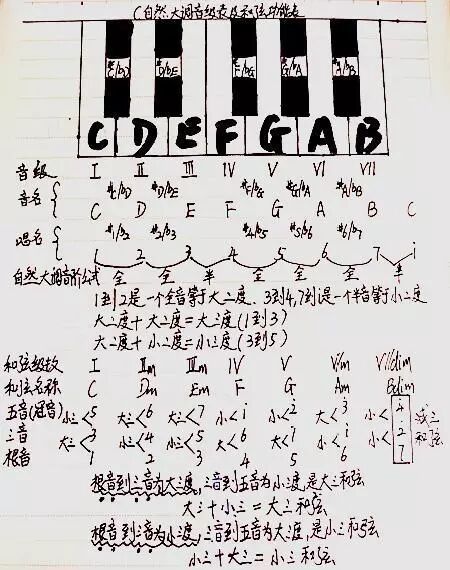 C自然大调音级表及和弦功能表
#C/bD #D/bE #F/bG #G/bA #A/bB
C D E F G A B
音级 I II III IV V VI VII
音名 #C/bD #D/bE #F/bG #G/bA #A/bB
C D E F G A B C
唱名 #1/b2 #2/b3 #4/b5 #5/b6 #6/b7
1 2 3 4 5 6 7 i
自然大调音阶公式 全 全 半 全 全 全 半
1到2是一个全音等于大二度、3到4,7到i是一个半音等于小二度
大二度+大二度=大三度(1到3)
大二度+小二度=小三度(3到5)
和弦级数 I IIm IIIm IV V VIm VIIdim
和弦名称 C Dm Em F G Am Bdim
五音(冠音) 小三<5 大三<6 大三<7 小<i 小<2 大<3 小<4 减三
三音 大三<3 小三<4 小三<5 大<6 大<7 小<i 小<2 和弦
根音 1 2 3 4 5 6 7
根音到三音为大三度,三音到五音为小三度,是大三和弦
大三+小三=大三和弦
根音到三音为小三度,三音到五音为大三度,是小三和弦
小三+大三=小三和弦